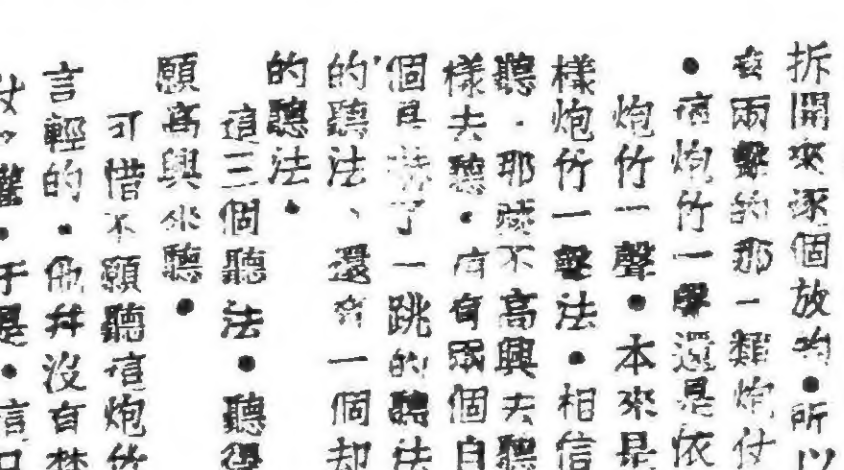 拆開來逐個放的●所以
兩聲的那一類炮仗
●這炮竹一聲還是依
炮竹一聲●本來是
樣炮竹一聲法●相信
聽●那裏不高興去聽
樣去聽●有個自
個具了一跳的聽法
的聽法、還有一個却
的聽法●
這三個聽法●聽得
願高興來聽●
可惜不願聽這炮竹
言輕的●他并沒有
仗聲●于是●這